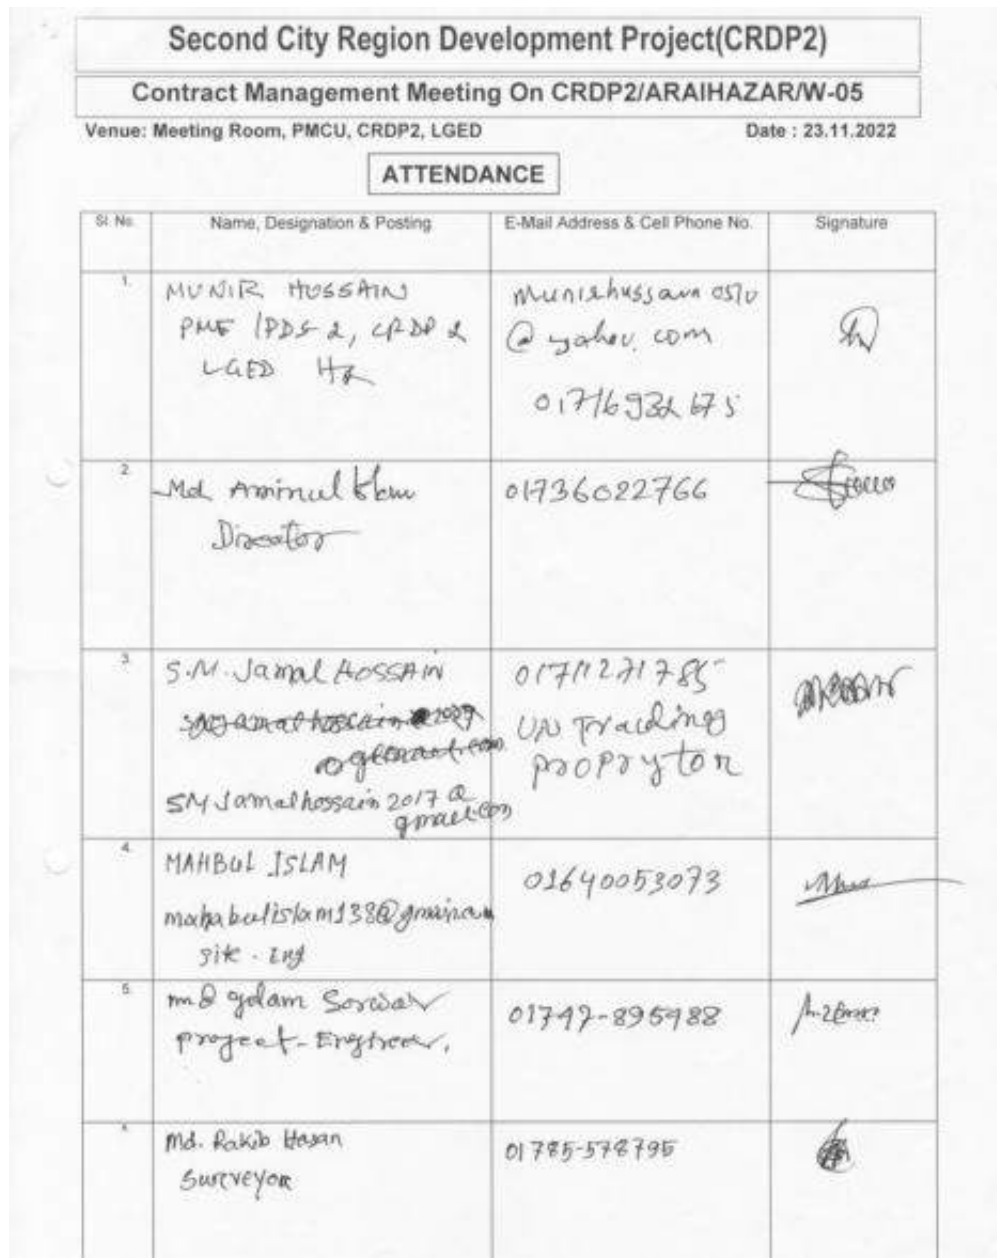 Second City Region Development Project(CRDP2)
Contract Management Meeting On CRDP2/ARAIHAZAR/W-05
Venue: Meeting Room, PMCU, CRDP2, LGED Date : 23.11.2022
ATTENDANCE
Sl. No. Name, Designation & Posting E-Mail Address & Cell Phone No. Signature
1.
MUNIR HUSSAIN
PME /PDS 2, CRDP 2
LGED HQ
@ yahoo.com
2.
Md. Aminul
Director
01736022766
3.
S.M. Jamal HOSSAIN
SMJamalhossain2017@
gmail.com
01711271785
Trading
proprytor
4.
MAHBUL ISLAM
Site. Eng
01640053073
5.
golam Sorwar
project-Engineer.
Md. Rakib Hasan
Surveyor
01785-578795